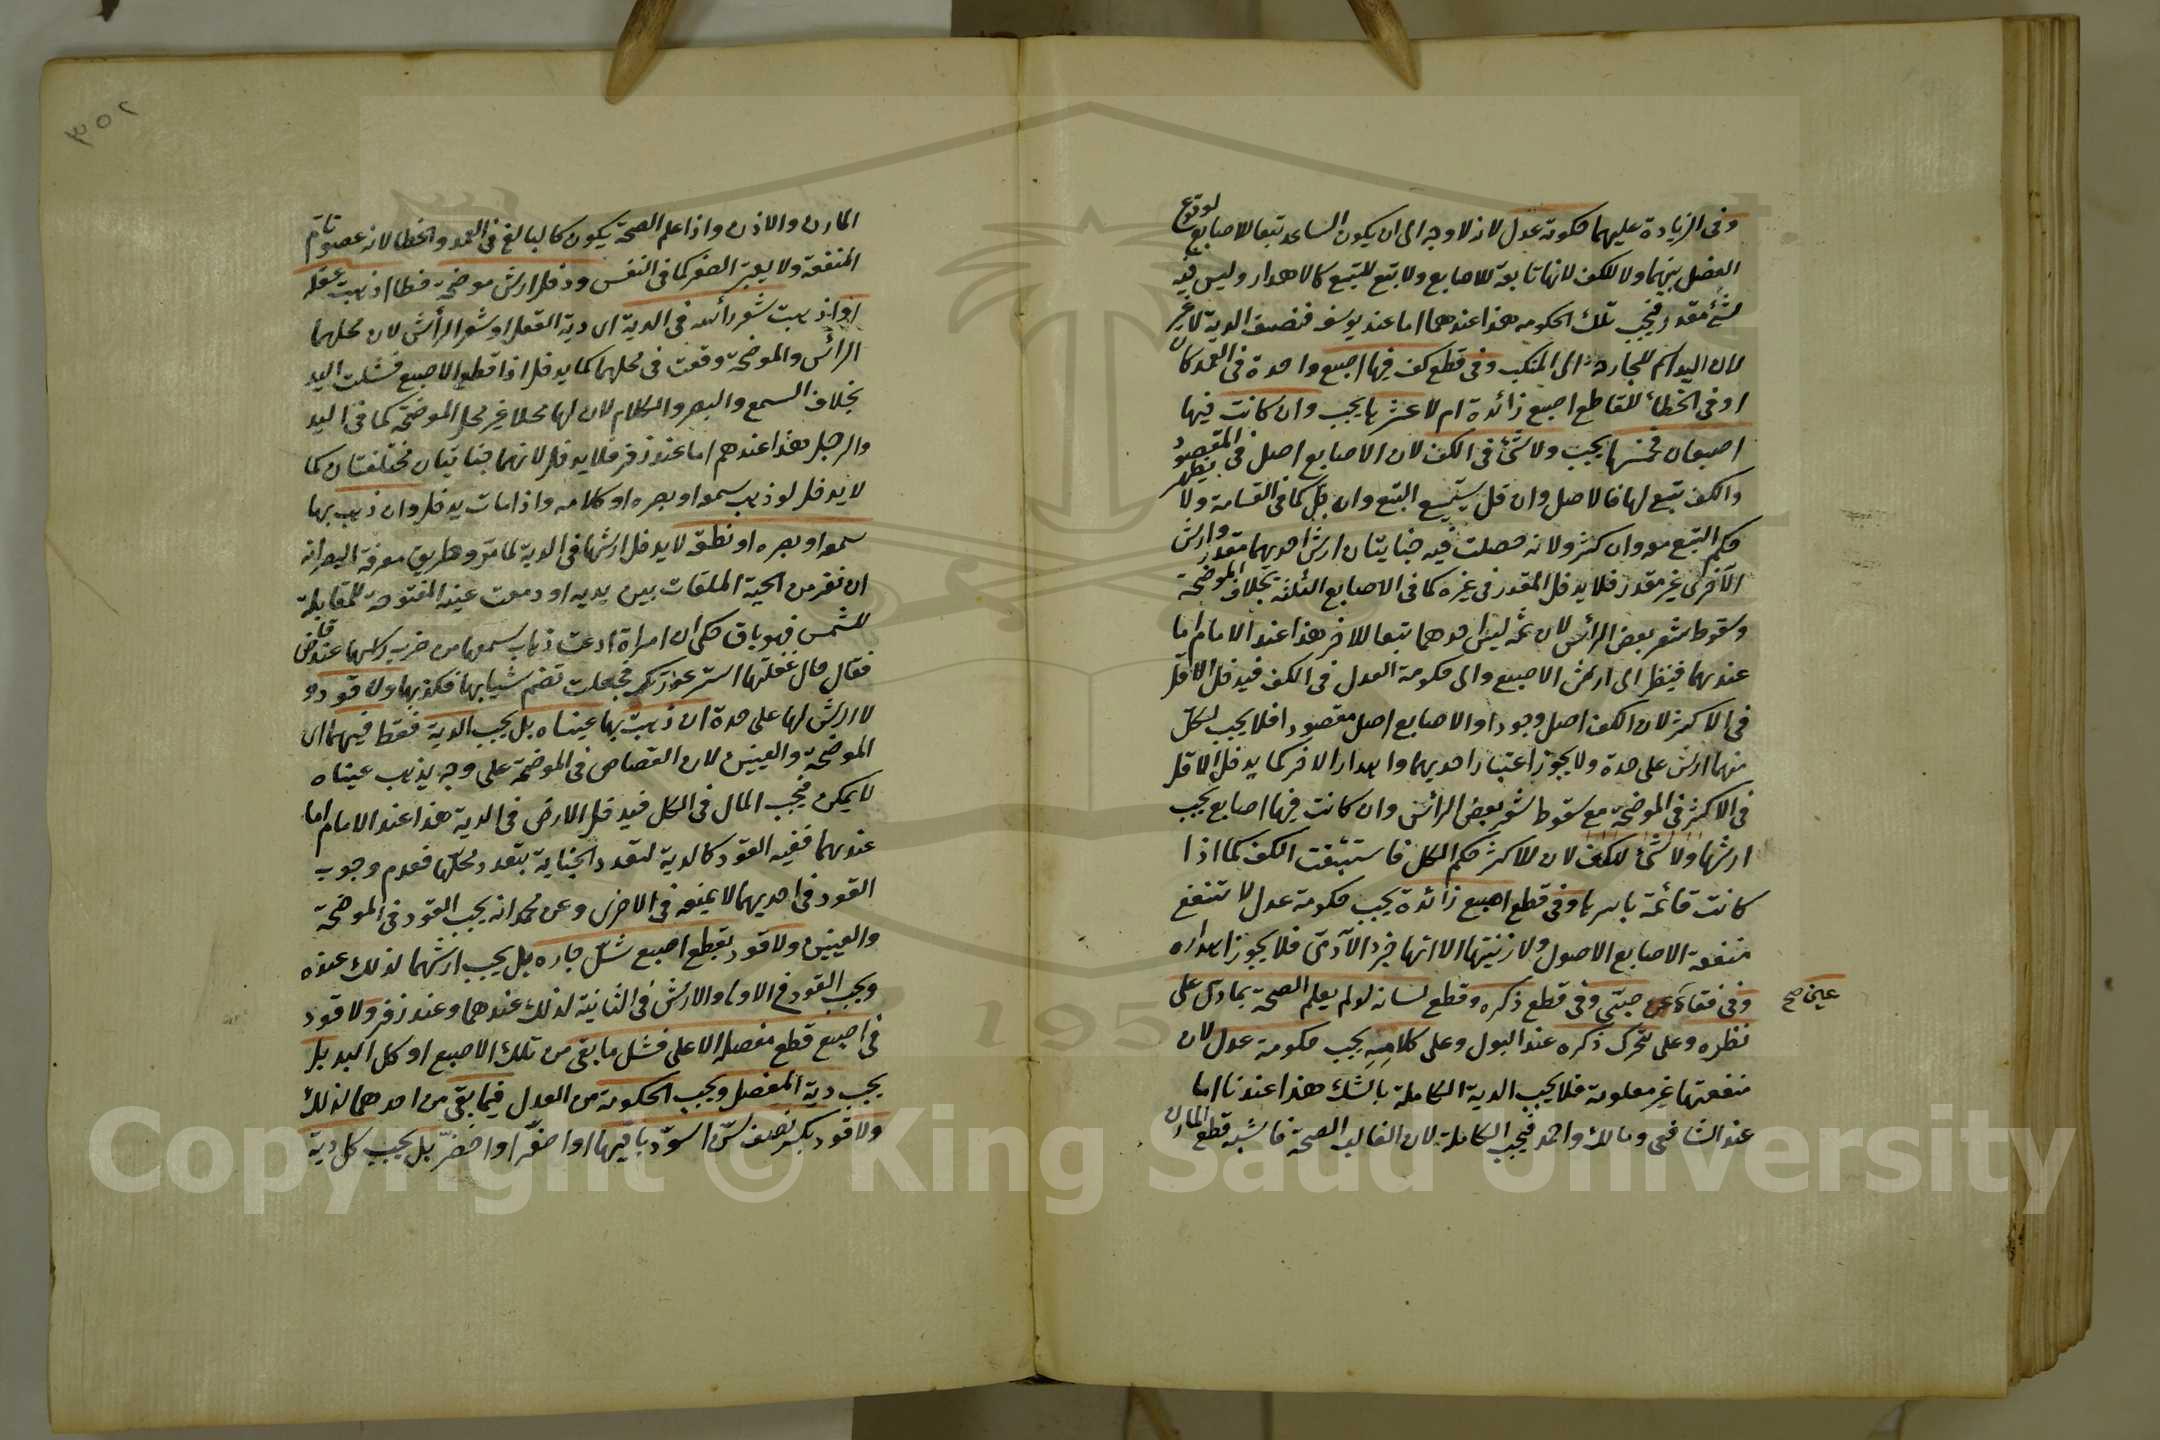 وفى الزيادة عليهما حكومة عدل لانه لا وجه الى ان يكون الساعد تبعا للاصابع لوقوع
الفصل بينهما ولا للكف لانها تابعة للاصابع ولا تبع للتبع كالاهدار وليس فيه
شئ مقدر فيجب تلك الحكومة هذا عندهما اما عند يوسف فنصف الدية لا غير
لان اليد اسم للجارحة الى المنكب وفى قطع كف فيها اصبع واحدة فى العمد كان
او فى الخطأ للقاطع اصبع زائدة ام لا عشرها يجب وان كانت فيها
اصبعان فخمسها يجب ولا شئ فى الكف لان الاصابع اصل فى المقصود
والكف تبع لها فالاصل وان قل يستتبع التبع وان جل كما فى القسامة ولا يظهر
حكم التبع معه وان كثر ولانه حصلت فيه جنايتان ارش احديهما مقدر وارش
الآخرى غير مقدر فلا يدخل المقدر فى غيره كما فى الاصابع الثلثة بخلاف الموضحة
وسقوط شعر بعض الرأس لان ثمه ليس احدهما تبعا للاخر هذا عند الامام اما
عندهما فينظر الى ارش الاصبع والى حكومة العدل فى الكف فيدخل الاقل
فى الاكثر لان الكف اصل وجودا والاصابع اصل مقصودا فلا يجب لكل
منهما ارش على حدة ولا يجوز اعتبار احديهما واهدار الاخر كما يدخل الاقل
فى الاكثر فى الموضحة مع سقوط شعر بعض الرأس وان كانت فيها اصابع يجب
ارشها ولا شئ للكف لان للاكثر حكم الكل فاستتبعت الكف كما اذا
كانت قائمة باسرها وفى قطع اصبع زائدة يجب حكومة عدل لا تنفع
منفعة الاصابع الاصول ولا زنيتها الا انها جزء الآدمى فلا يجوز اهداره
وفى فقاء عين صبى وفى قطع ذكره وقطع لسانه لو لم يعلم الصحة بما دل على
عين صح
نظره وعلى تحرك ذكره عند البول وعلى كلامه يجب حكومة عدل لان
منفعتها غير معلومة فلا يجب الدية الكاملة بالشك هذا عندنا اما
عند الشافعى ومالك واحمد فيجب الكاملة لان الغالب الصحة فاشبه قطع المارن
٣٥٢
المارن والاذن واذا علم الصحة يكون كالبالغ فى العمد والخطا لانه عضو تام
المنفعة ولا يعتبر الصغر كما فى النفس ودخل ارش موضحة خطا اذهبت عقله
او اذهبت شعر رأسه فى الدية اى دية العقل او شعر الرأس لان محلهما
الرأس والموضحة وقعت فى محلهما كما يدخل اذا قطع الاصبع فشلت اليد
بخلاف السمع والبصر والكلام لان لها محلا غير محل الموضحة كما فى اليد
والرجل هذا عندهم اما عند زفر فلا يدخل لانهما جنايتان مختلفتان كما
لا يدخل لو ذهب سمعه او بصره او كلامه واذا مات يدخل وان ذهب بها
سمعه او بصره او نطقه لا يدخل ارشها فى الدية لما مر وطريق معرفة البصر انه
ان نفر من الحية الملقات بين يديه او دمعت عينه المفتوحة للمقابلة
للشمس فهو باق حكى ان امراة ادعت ذهاب سمعها من ضرب راسها عند قاض
فقال حال غفلتها استر عورتك فجعلت تضم ثيابها فكذبها ولا قود و
لا ارش لها على حدة ان ذهبت بها عيناه بل يجب الدية فقط فيهما اى
الموضحة والعينين لان القصاص فى الموضحة على وجه يذهب عيناه
لا يمكن فيجب المال فى الكل فيدخل الارش فى الدية هذا عند الامام اما
عندهما ففيه القود كالدية لتعدد الجناية بتعدد محلها فعدم وجوب
القود فى احديهما لا يمنعه فى الاخرى وعن محمد انه يجب القود فى الموضحة
والعينين ولا قود بقطع اصبع شل جاره بل يجب ارشهما لذلك عنده
ويجب القود فى الاولى والارش فى الثانية لذلك عندهما وعند زفر ولا قود
فى اصبع قطع مفصله الاعلى فشل ما بقى من تلك الاصبع او كل اليد بل
يجب دية المفصل ويجب الحكومة من العدل فيما بقى من احدهما لذلك
ولا قود بكسر نصف سن اسود باقيها او اصفر او اخضر بل يجب كل دية
Copyright © King Saud University
195